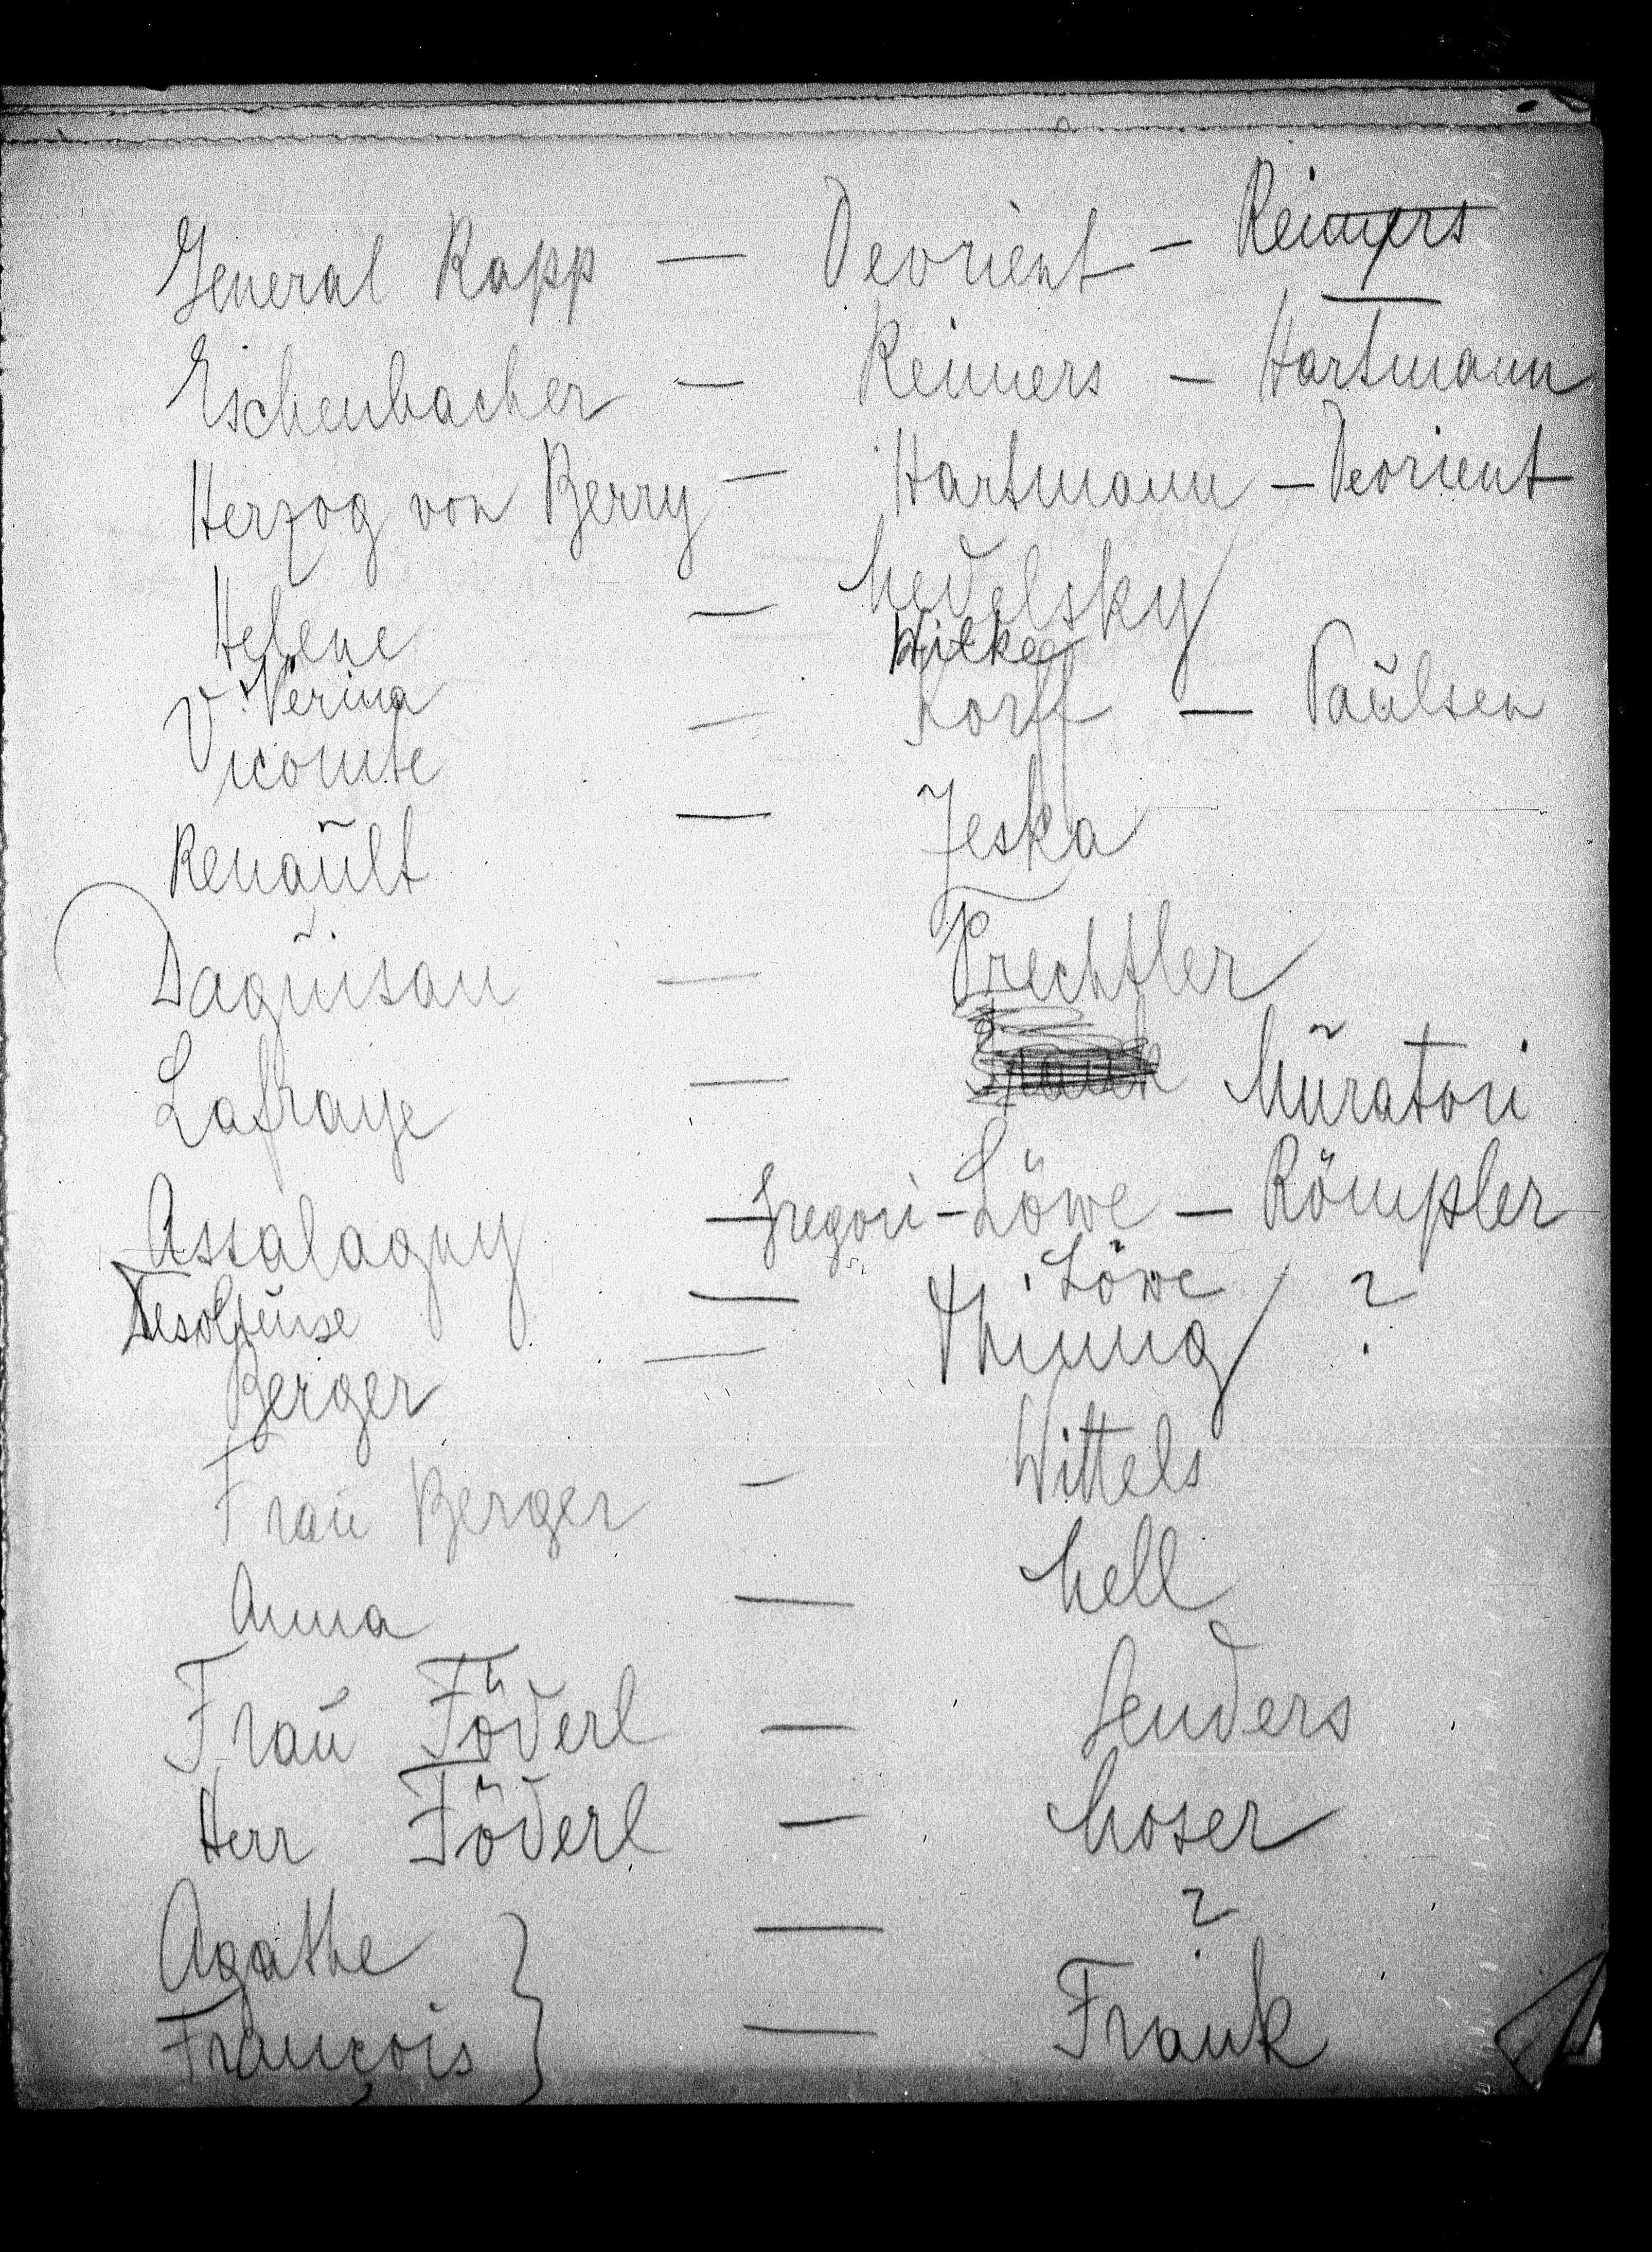 General Rapp — Devrient – Reimers
Eschenbacher — Reimers – Hartmann
Herzog von Berry – Hartmann – Devrient
Helene — Medelsky
V. Nerina Witke
Vicomte — Korff — Paulsen
Renault — Jeska
Daguisan — Prechtler
Lafraye — Muratori
Assalagny — Gregori – Löwe – Römpler
Desolteuse — Löwe ?
Berger — Thimig
Frau Berger – Wittels
Anna — Mell
Frau Föderl — Senders
Herr Föderl — Moser
Agathe — ?
François — Frank